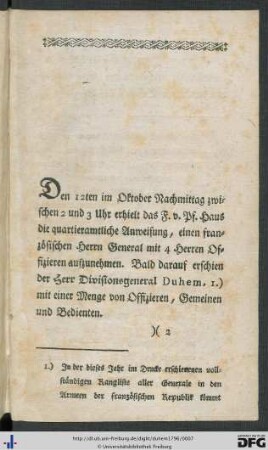 Den 12ten im Oktober Nachmittag zwi-
schen 2 und 3 Uhr erhielt das F. v. Pf. Haus
die quartieramtliche Anweisung, einen fran-
zösischen Herrn General mit 4 Herren Of-
fizieren aufzunehmen. Bald darauf erschien
der Herr Divisionsgeneral Duhem. 1.)
mit einer Menge von Offizieren, Gemeinen
und Bedienten.
)( 2
1.) In der dieses Jahr im Drucke erschienenen voll-
ständigen Rangliste aller Generale in den
Armeen der französischen Republik kömmt
http://dl.ub.uni-freiburg.de/diglit/duhem1796/0007
© Universitätsbibliothek Freiburg
DFG